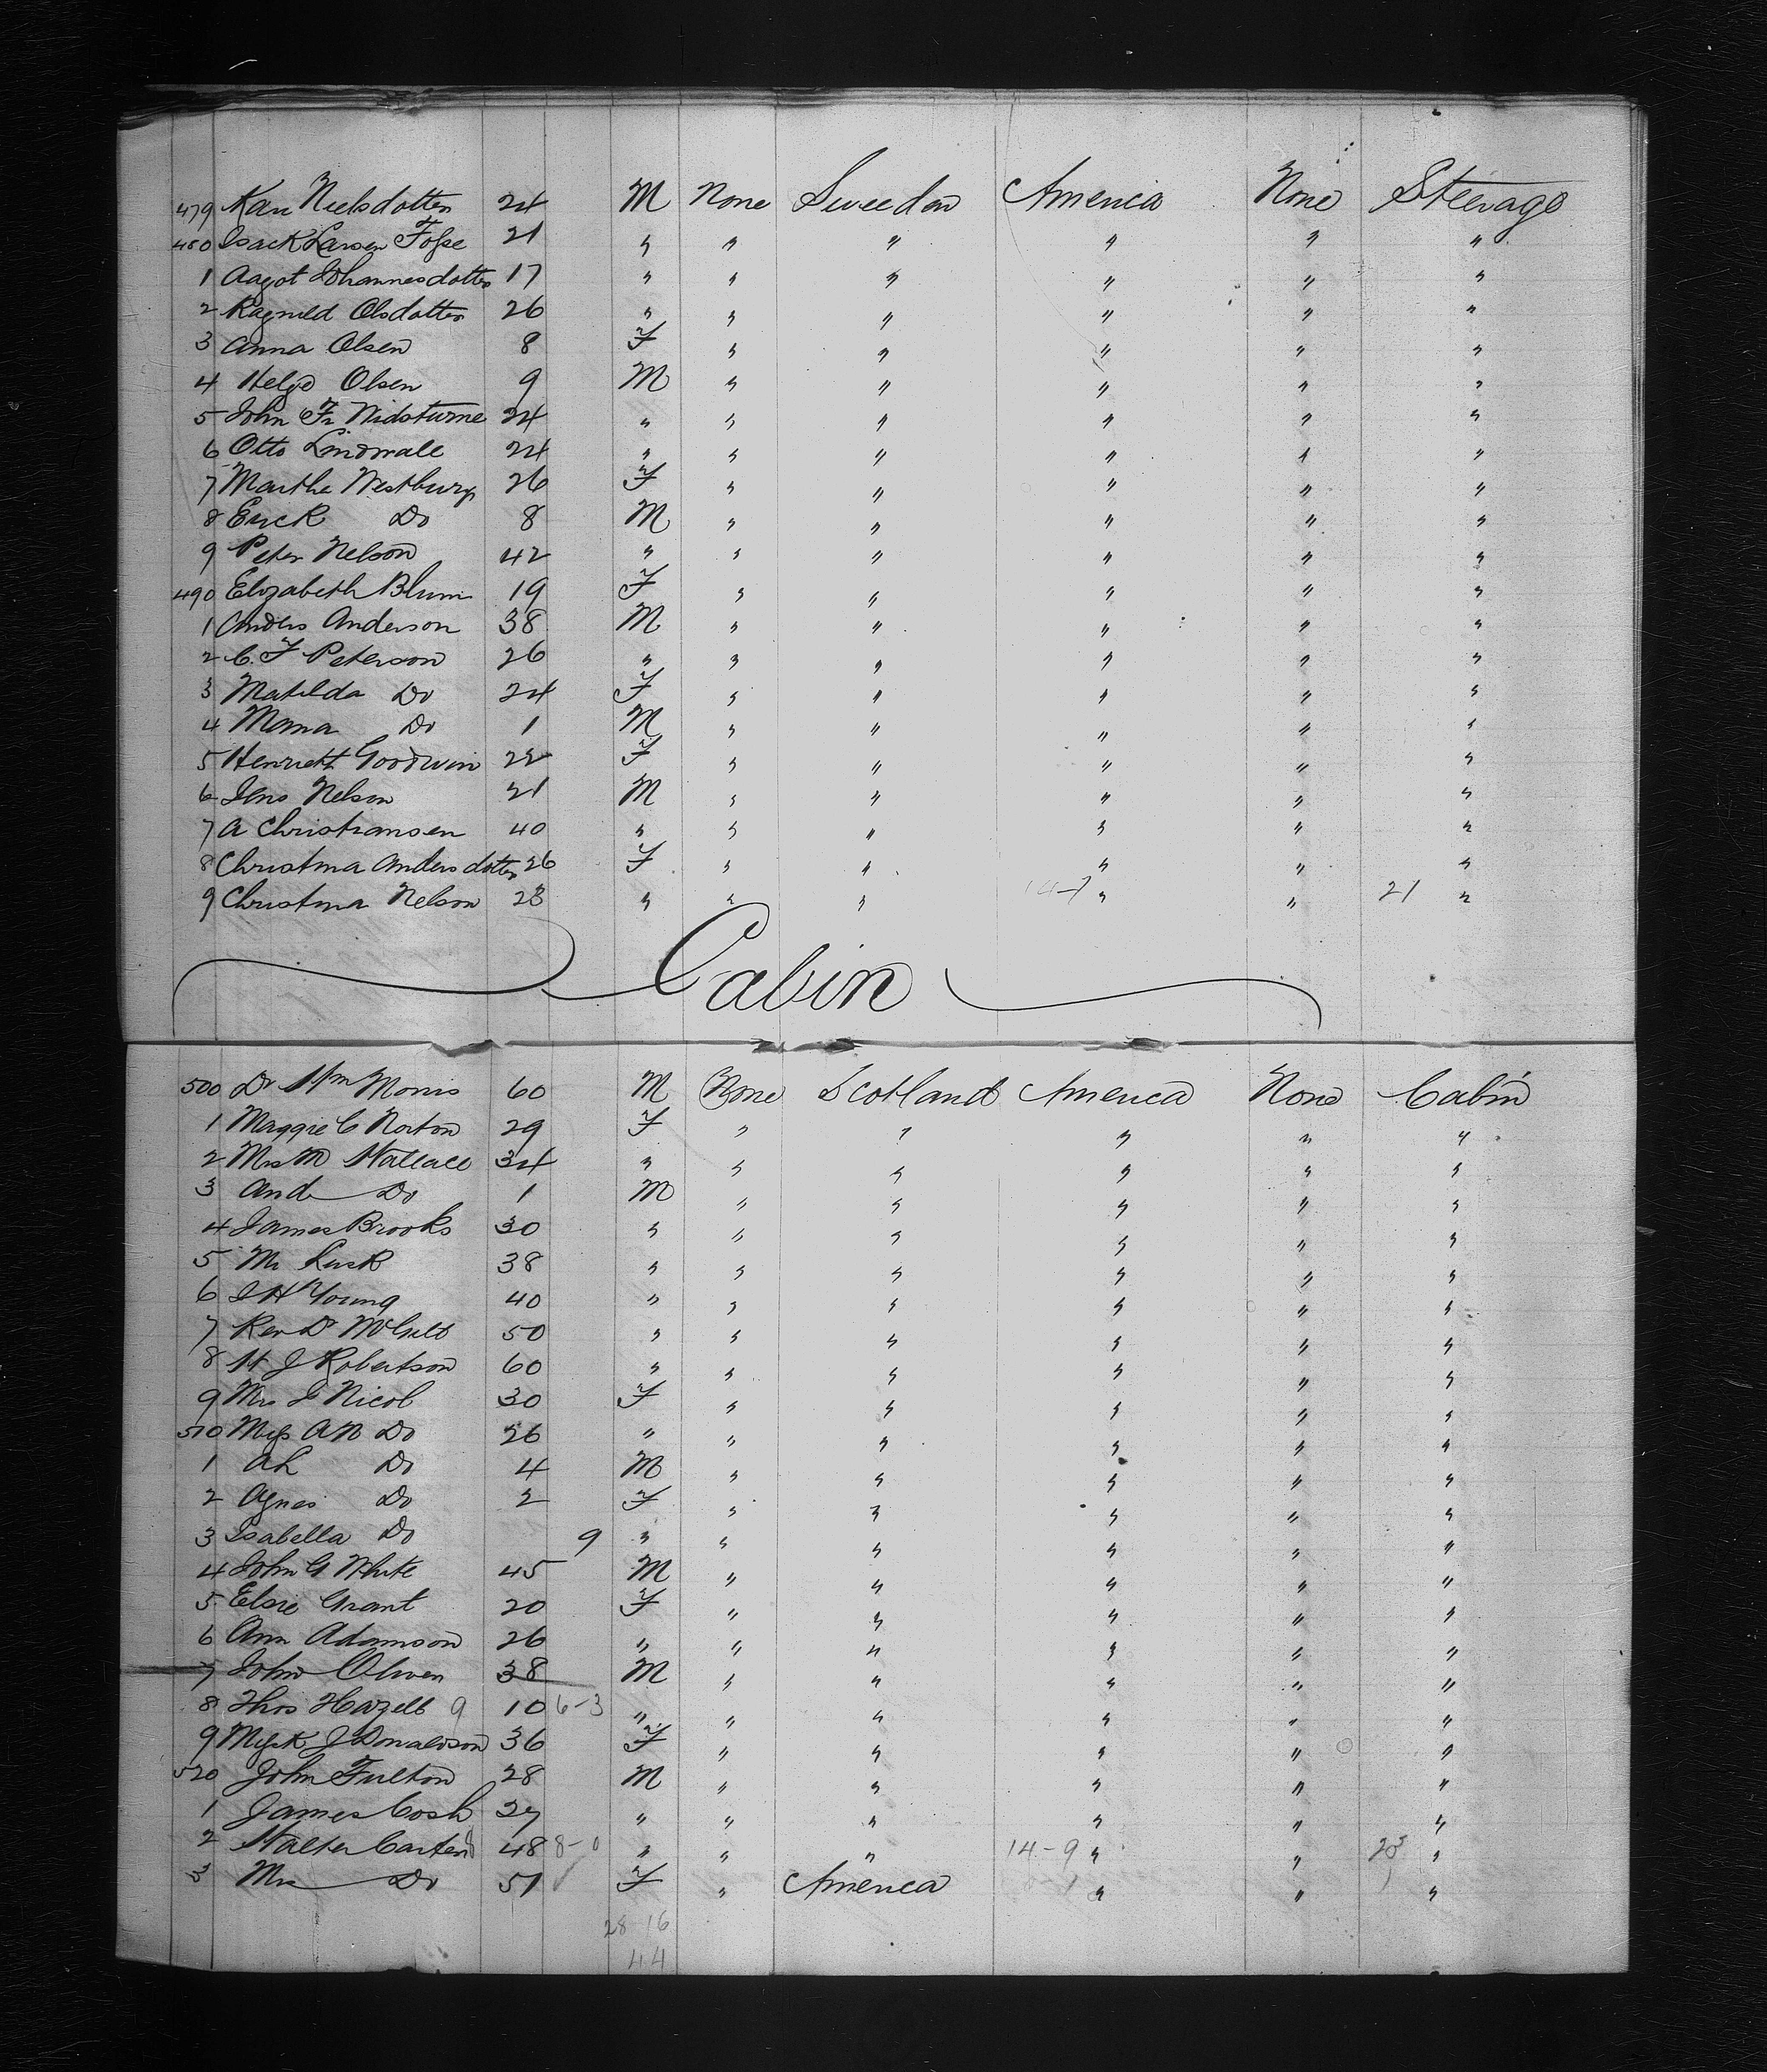 479 Kari Nielsdotter 24 M None Sweeden America None Steerage
480 Isack Larsen Fosse 21 " " " " " "
1 Aagot Johannesdotter 17 " " " " " "
2 Ragnild Olsdotter 26 " " " " " "
3 Anna Olsen 8 F " " " " "
4 Helge Olsen 9 M " " " " "
5 John Fr Nidsturne 24 " " " " " "
6 Otto Lindwale 24 " " " " " "
7 Martha Westburg 26 F " " " " "
8 Erick Do 8 M " " " " "
9 Peter Nelson 42 " " " " " "
490 Elizabeth Blum 19 F " " " " "
1 Anders Anderson 38 M " " " " "
2 C. F Peterson 26 " " " " " "
3 Matilda Do 24 F " " " " "
4 Mama Do 1 M " " " " "
5 Henriett Goodwin 22 F " " " " "
6 Jens Nelson 21 M " " " " "
7 A Christiansen 40 " " " " " "
8 Christina Andersdotter 26 F " " " " "
9 Christina Nelson 23 " " " 14-7 " " 21 "
Cabin
500 Dr Wm Morris 60 M None Scotland America None Cabin
1 Maggie C Norton 29 F " " " " "
2 Mrs M Wallace 34 " " " " " "
3 And Do 1 M " " " " "
4 James Brooks 30 " " " " " "
5 Mr Lusk 38 " " " " " "
6 J H Young 40 " " " " " "
7 Rev Dr McGill 50 " " " " " "
8 W J Robertson 60 " " " " " "
9 Mrs J Nicol 30 F " " " " "
510 Miss A N Do 26 " " " " " "
1 Al Do 4 M " " " " "
2 Agnes Do 2 F " " " " "
3 Isabella Do 9 " " " " " "
4 John G White 45 M " " " " "
5 Elsie Grant 20 F " " " " "
6 Ann Adamson 26 " " " " " "
7 John Oliver 38 M " " " " "
8 Thos Hazell 9 10 6-3 " " " " " "
9 Miss K J Donaldson 36 F " " " " "
520 John Fulton 28 M " " " " "
1 James Cosh 27 " " " " " "
2 Walter Carter 48 8-0 " " " 14-9 " " 23 "
3 Mrs Do 51 F " America " " "
28 16
44